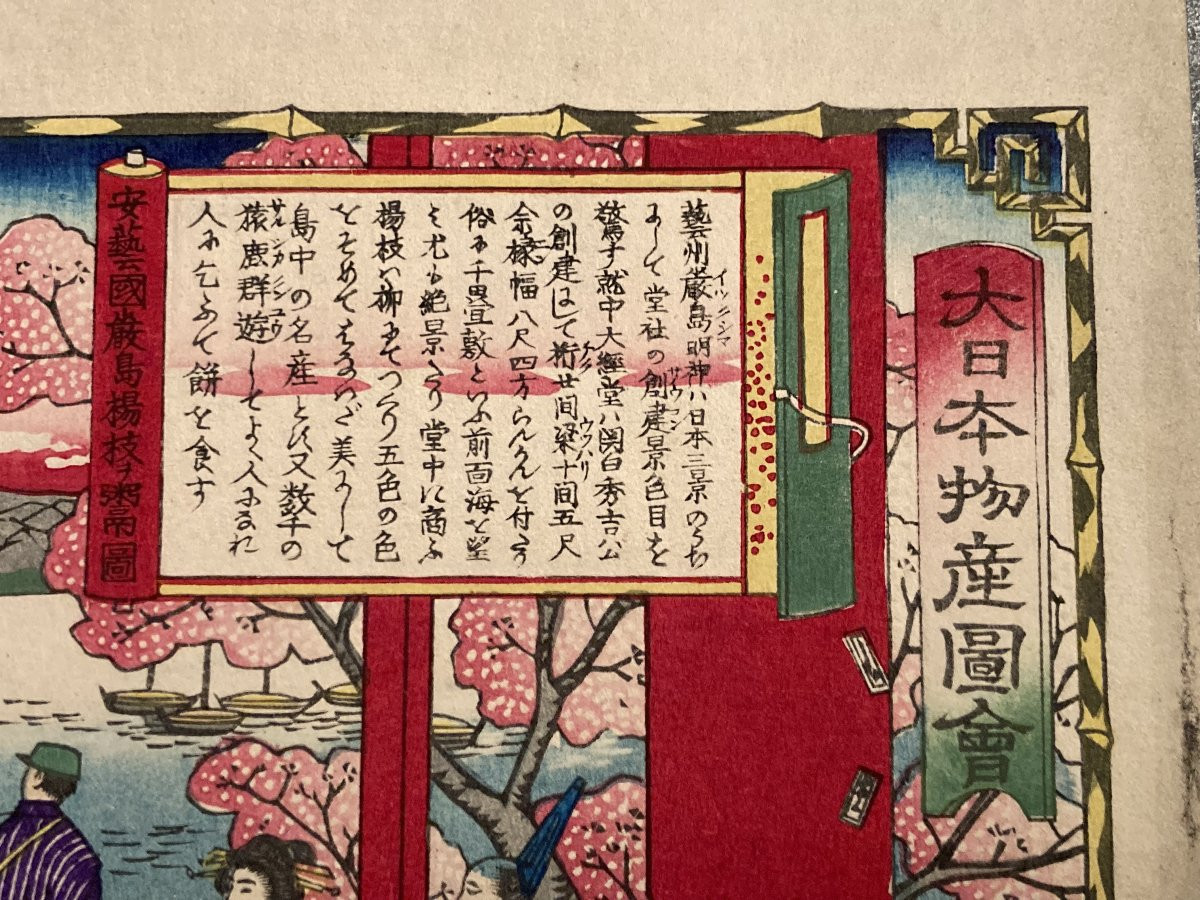 大日本物産圖會
藝州嚴島明神ハ日本三景のうち
にして堂社の創建景色目を
驚す就中大經堂ハ関白秀吉公
の創建にして桁廿間梁十間五尺
余椽幅八尺四方らんかんを付たり
俗に千畳敷といふ前面海を望
み尤も絶景たり堂中に商ふ
楊枝ハ柳にてつくり五色の色
をそめてはなハだ美にして
島中の名産とす又数千の
猿鹿群遊してよく人になれ
人に乞ふて餅を食す
安藝國嚴島楊枝ヲ鬻圖